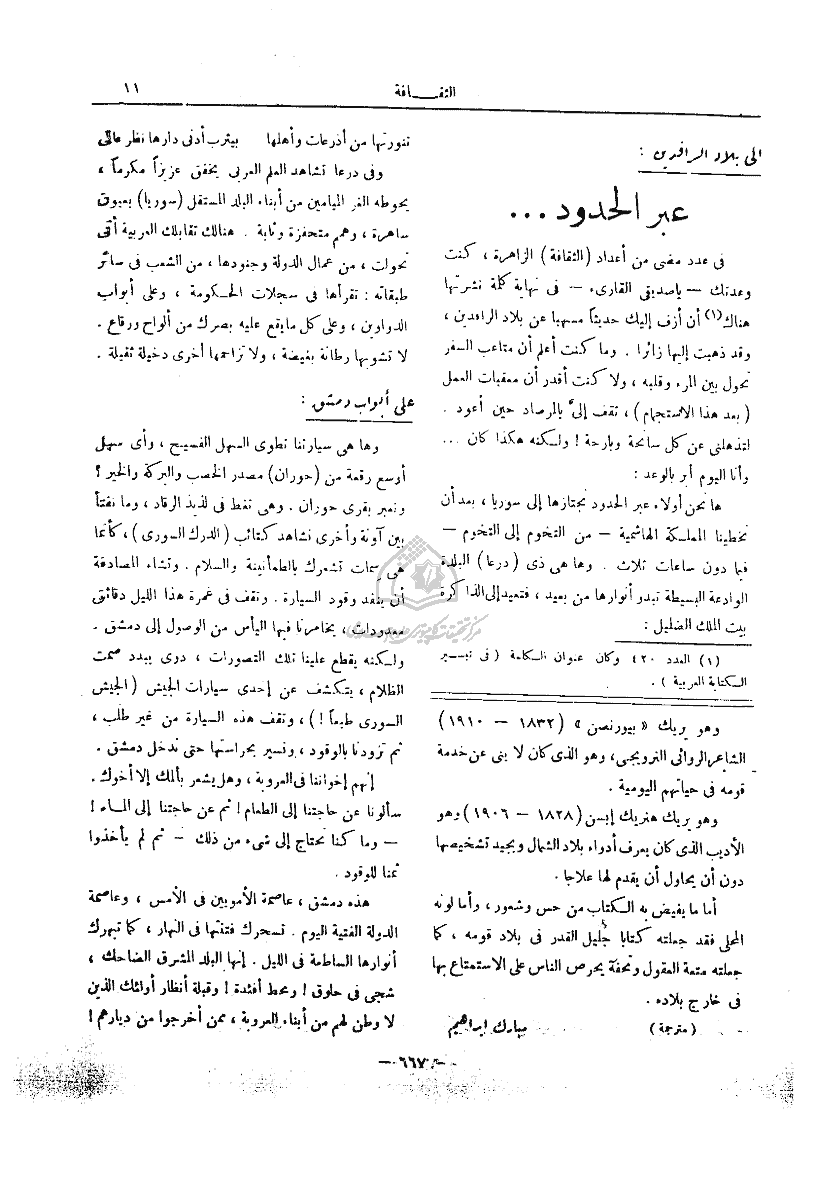 الثقافة
١١
الى بلاد الرافدين :
عبر الحدود ...
فى عدد مضى من أعداد (الثقافة) الزاهرة ، كنت
وعدتك — ياصديقى القارىء — فى نهاية كلمة نشرتها
هناك(١) أن أزف إليك حديثاً مسهبا عن بلاد الرافدين ،
وقد ذهبت إليها زائرا . وما كنت أعلم أن متاعب السفر
تحول بين المرء وقلبه ، ولا كنت أقدر أن معقبات العمل
( بعد هذا الاستجمام ) ، تقف إلىَّ بالمرصاد حين أعود .
لتذهلنى عن كل سانحة وبارحة ! ولكنه هكذا كان ...
وأنا اليوم أبر بالوعد :
ها نحن أولاء عبر الحدود نجتازها إلى سوريا ، بعد أن
تخطينا المملكة الهاشمية — من التخوم إلى التخوم —
فيما دون ساعات ثلاث . وها هى ذى ( درعا ) البلدة
الوادعة البسيطة تبدر أنوارها من بعيد ، فتعيد إلى الذاكرة
بيت الملك الضليل :
(١) العدد ٤٢٠ وكان عنوان الكلمة ( فى تيسير
الكتابة العربية ) .
وهو يريك « بيورنصن » (١٨٣٢ — ١٩١٠)
الشاعر الروائى النرويجى، وهو الذى كان لا ينى عن خدمة
قومه فى حياتهم اليومية .
وهو يريك هنريك إبسن (١٨٢٨ — ١٩٠٦) وهو
الأديب الذى كان يعرف أدواء بلاد الشمال ويجيد تشخيصها
دون أن يحاول أن يقدم لها علاجا .
أما ما يفيض به الكتاب من حس وشعور ، وأما لونه
المحلى فقد جعلته كتابا جليل القدر فى بلاد قومه ، كما
جعلته متعة العقول وتحفة يحرص الناس على الاستمتاع بها
فى خارج بلاده .
( مترجمة ) مبارك ابراهيم
تنورتها من أذرعات وأهلها بيثرب أدنى دارها نظر عالى
وفى درعا تشاهد العلم العربى يخفق عزيزاً مكرماً ،
يحوطه الغر الميامين من أبناء البلد المستقل (سوريا) بعيون
ساهرة ، وهمم متحفزة وثابة . هنالك تقابلك العربية أنى
تحولت ، من عمال الدولة وجنودها ، من الشعب فى سائر
طبقاته : تقرأها فى سجلات الحكومة ، وعلى أبواب
الدواوين ، وعلى كل ما يقع عليه بصرك من ألواح ورقاع .
لا تشوبها رطانة بغيضة ، ولا تزاحمها أخرى دخيلة ثقيلة .
على أبواب دمشق :
وها هى سيارتنا تطوى السهل الفسيح ، وأى سهل
أوسع رقعة من (حوران) مصدر الخصب والبركة والخير ؟
ونمر بقرى حوران . وهى تغط فى لذيذ الرقاد ، وما نفتأ
بين آونة وأخرى نشاهد كتائب ( الدرك السورى ) ، كأنما
هى سمات تشعرك بالطمأنينة والسلام . وتشاء المصادفة
أن ينفد وقود السيارة . ونقف فى غمرة هذا الليل دقائق
معدودات ، يخامرنا فيها اليأس من الوصول إلى دمشق .
ولكنه يقطع علينا تلك التصورات ، دوى يبدد صمت
الظلام ، يتكشف عن إحدى سيارات الجيش ( الجيش
السورى طبعاً ! ) ، وتقف هذه السيارة من غير طلب ،
ثم تزودنا بالوقود ، وتسير بحراستها حتى ندخل دمشق .
إنهم إخواننا فى العروبة ، وهل يشعر بألمك إلا أخوك .
سألونا عن حاجتنا إلى الطعام ! ثم عن حاجتنا إلى الماء !
— وما كنا نحتاج إلى شىء من ذلك — ثم لم يأخذوا
ثمنا للوقود .
هذه دمشق ، عاصمة الأمويين فى الأمس ، وعاصمة
الدولة الفتية اليوم . تسحرك فتنتها فى النهار ، كما تبهرك
أنوارها الساطعة فى الليل . إنها البلد المشرق الضاحك ،
شجى فى حلوق ! ومحط أفئدة ! وقبلة أنظار أولئك الذين
لا وطن لهم من أبناء العروبة ، ممن أخرجوا من ديارهم !
— ٦٦٧ —